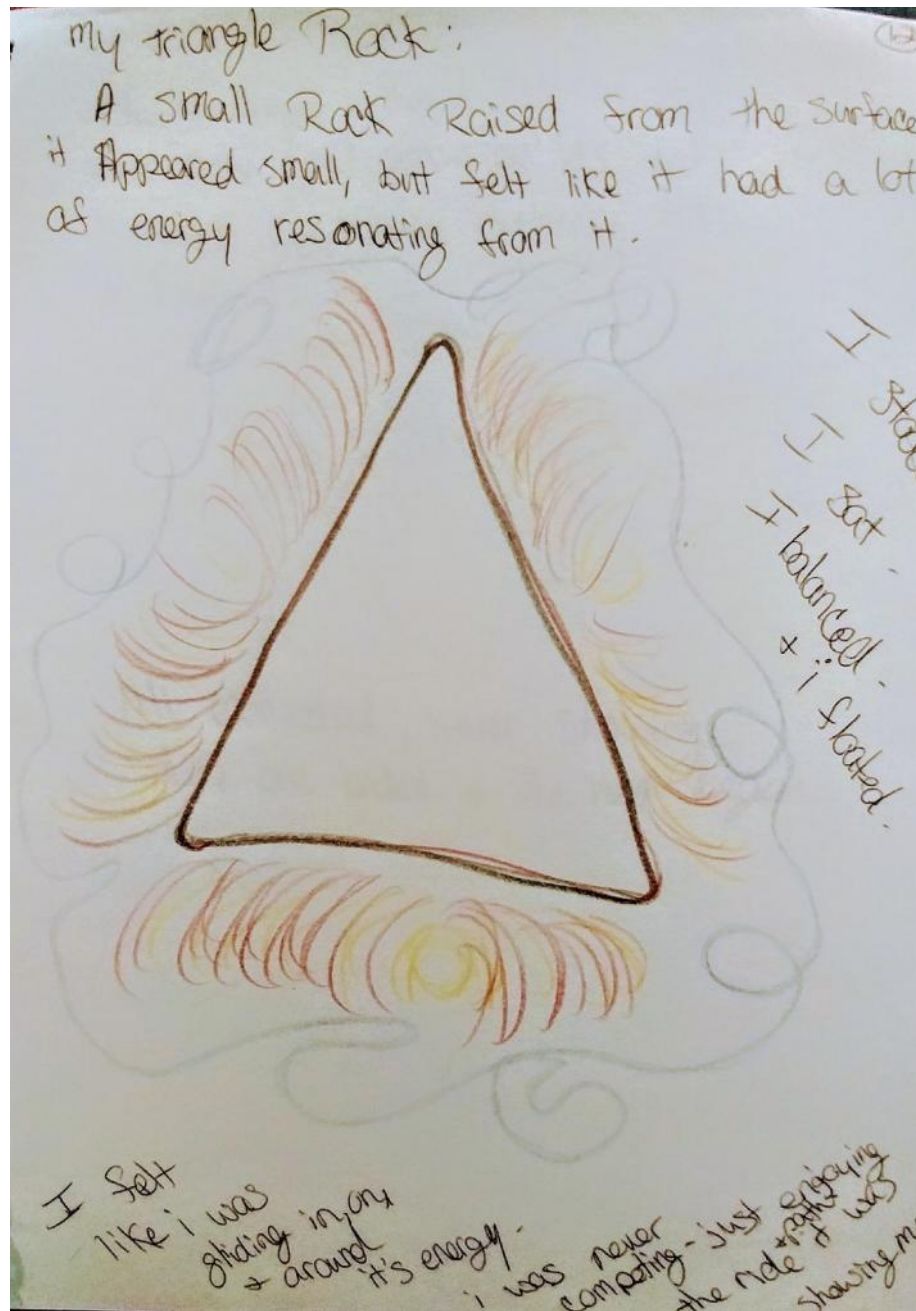 my triangle Rock:
A small Rock Raised from the surface
it Appeared small, but felt like it had a lot
of energy resonating from it.
I
I sat.
I balanced.
+ i floated.
I felt
like i was
gliding in, on,
+ around
it's energy.
i was never
competing - just enjoying
the ride + path it was
showing